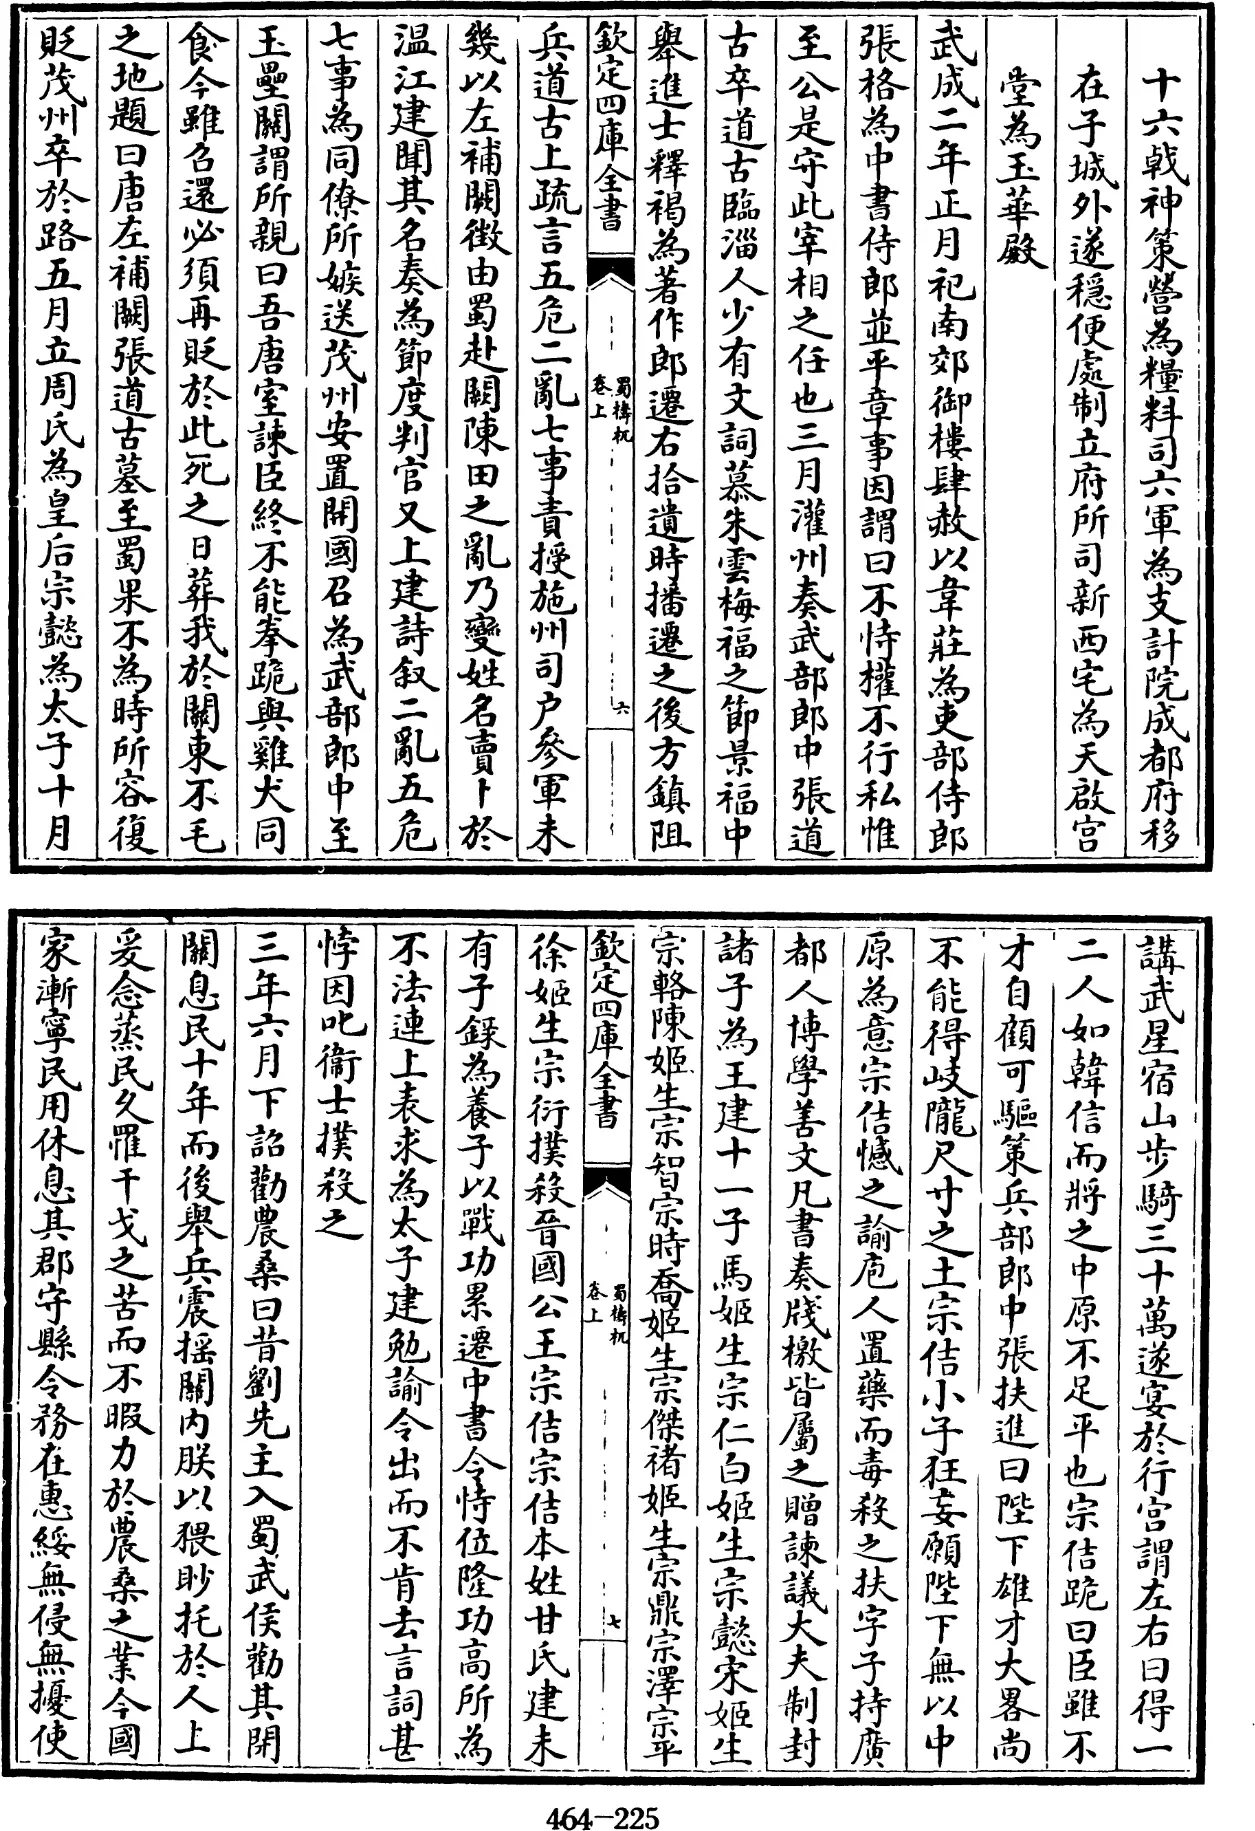 十六㦸神策營為糧料司六軍為支計院成都府移
在子城外遂穩便處制立府所司新西宅為天啟宫
堂為玉華殿
武成二年正月祀南郊御樓肆赦以韋莊為吏部侍郎
張格為中書侍郎並平章事因謂曰不恃權不行私惟
至公是守此宰相之任也三月灌州奏武部郎中張道
古卒道古臨淄人少有文詞慕朱雲梅福之節景福中
舉進士釋褐為著作郎遷右拾遺時播遷之後方鎮阻
欽定四庫全書
蜀檮杌
卷上
六
兵道古上疏言五危二亂七事責授施州司户參軍未
幾以左補闕徵由蜀赴闕陳田之亂乃變姓名賣卜於
温江建聞其名奏為節度判官又上建詩叙二亂五危
七事為同僚所嫉送茂州安置開國召為武部郎中至
玉壘關謂所親曰吾唐室諫臣終不能拳跪與雞犬同
食今雖召還必須再貶於此死之日葬我於關東不毛
之地題曰唐左補闕張道古墓至蜀果不為時所容復
貶茂州卒於路五月立周氏為皇后宗懿為太子十月
講武星宿山步騎三十萬遂宴於行宫謂左右曰得一
二人如韓信而將之中原不足平也宗佶跪曰臣雖不
才自顧可驅策兵部郎中張扶進曰陛下雄才大畧尚
不能得岐隴尺寸之土宗佶小子狂妄願陛下無以中
原為意宗佶憾之諭庖人置藥而毒殺之扶字子持廣
都人博學善文凡書奏牋檄皆屬之贈諫議大夫制封
諸子為王建十一子馬姬生宗仁白姬生宗懿宋姬生
宗輅陳姬生宗智宗時喬姬生宗傑禇姬生宗鼎宗澤宗平
欽定四庫全書
蜀檮杌
卷上
七
徐姬生宗衍撲殺晉國公王宗佶宗佶本姓甘氏建未
有子録為養子以戰功累遷中書令恃位隆功高所為
不法連上表求為太子建勉諭令出而不肯去言詞甚
悖因叱衛士撲殺之
三年六月下詔勸農桑曰昔劉先主入蜀武侯勸其閉
關息民十年而後舉兵震摇關内朕以猥眇托於人上
爰念蒸民久罹干戈之苦而不暇力於農桑之業今國
家漸寧民用休息其郡守縣令務在惠綏無侵無擾使
464-225